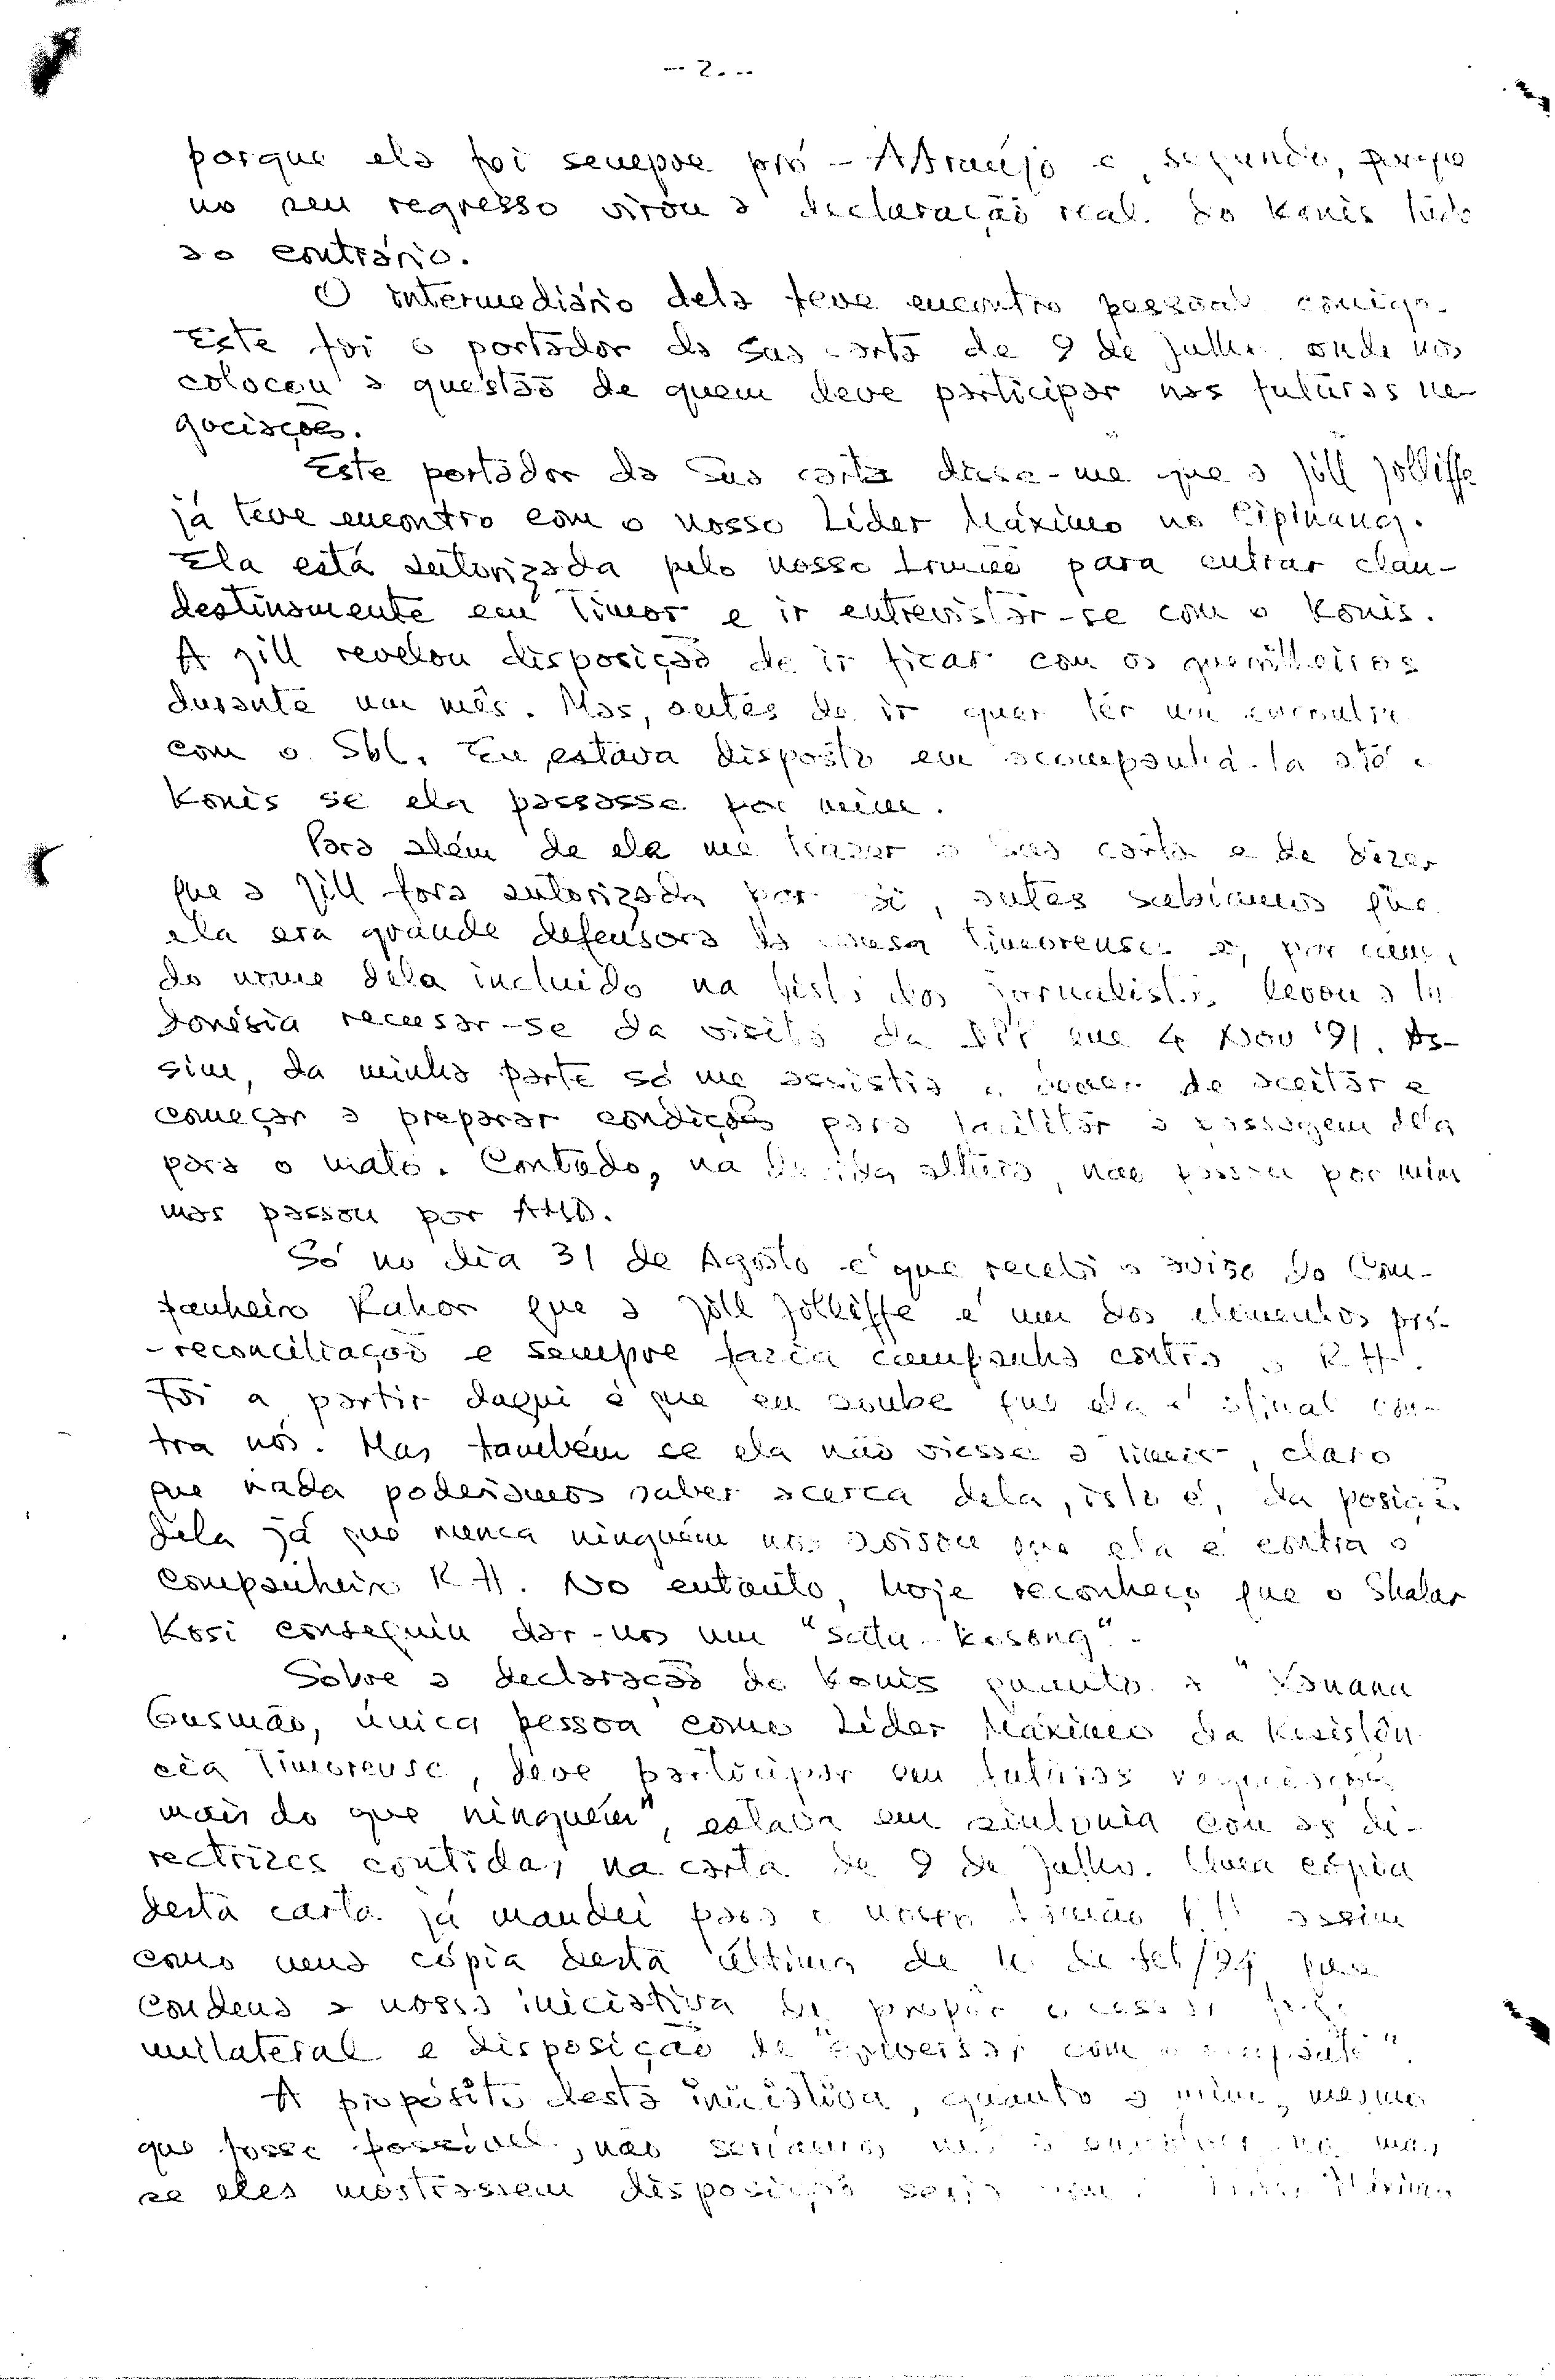 -- 2. --
porque ela foi sempre pró - AAraújo e, segundo, porque
no seu regresso virou a declaração real do Konis tudo
ao contrário.
O intermediário dela teve encontro pessoal comigo.
Este foi o portador da sua carta de 9 de Julho onde nos
colocou a questão de quem deve participar nas futuras ne-
gociações.
Este portador da sua carta disse-me que a Jill Jolliffe
já teve encontro com o nosso Líder Máximo na Cipinang.
Ela está autorizada pelo nosso Irmão para entrar clan-
destinamente em Timor e ir entrevistar-se com o Konis.
A Jill revelou disposição de ir ficar com os guerrilheiros
durante um mês. Mas, antes de ir quer ter um encontro
com o Sbl. Eu estava disposto em acompanhá-la até o
Konis se ela passasse por mim.
Para além de ela me trazer a sua carta e de dizer
que a Jill fora autorizada por si, antes sabíamos que
ela era grande defensora da causa timorense e, por
do nome dela incluido na lista dos jornalistas levou a In-
donésia recusar-se da visita da DPP em 4 Nov '91. As-
sim, da minha parte só me assistia o dever de aceitar e
começar a preparar condições para facilitar a passagem dela
para o mato. Contudo, na devida altura, não passou por mim
mas passou por AHD.
Só no dia 31 de Agosto é que recebi o aviso do Com-
panheiro Kahor que a Jill Jolliffe é um dos elementos pró-
-reconciliação e sempre fazia campanha contra o R.H.
Foi a partir daqui é que eu soube que ela é afinal con-
tra nós. Mas também se ela não viesse a Timor, claro
que nada poderíamos saber acerca dela, isto é, da posição
dela já que nunca ninguém nos avisou que ela é contra o
Companheiro R H. No entanto, hoje reconheço que o Shalar
Kosi conseguiu dar-nos um "satu - kosong".
Sobre a declaração do Konis quanto a "Xanana
Gusmão, única pessoa como Líder Máximo da Resistên-
cia Timorense, deve participar em futuras negociações
mais do que ninguém", estava em sintonia com as di-
rectrizes contidas na carta de 9 de Julho. Uma cópia
desta carta já mandei para o nosso Irmão assim
como uma cópia desta última de de Feb/94 que se
condena a nossa iniciativa de propôr o cessar fogo
unilateral e disposição de "conversar com o
A propósito desta iniciativa, quanto a mim, mesmo
que fosse possível, não seríamos nós a mas
se eles mostrassem disposição seria Líder Máximo